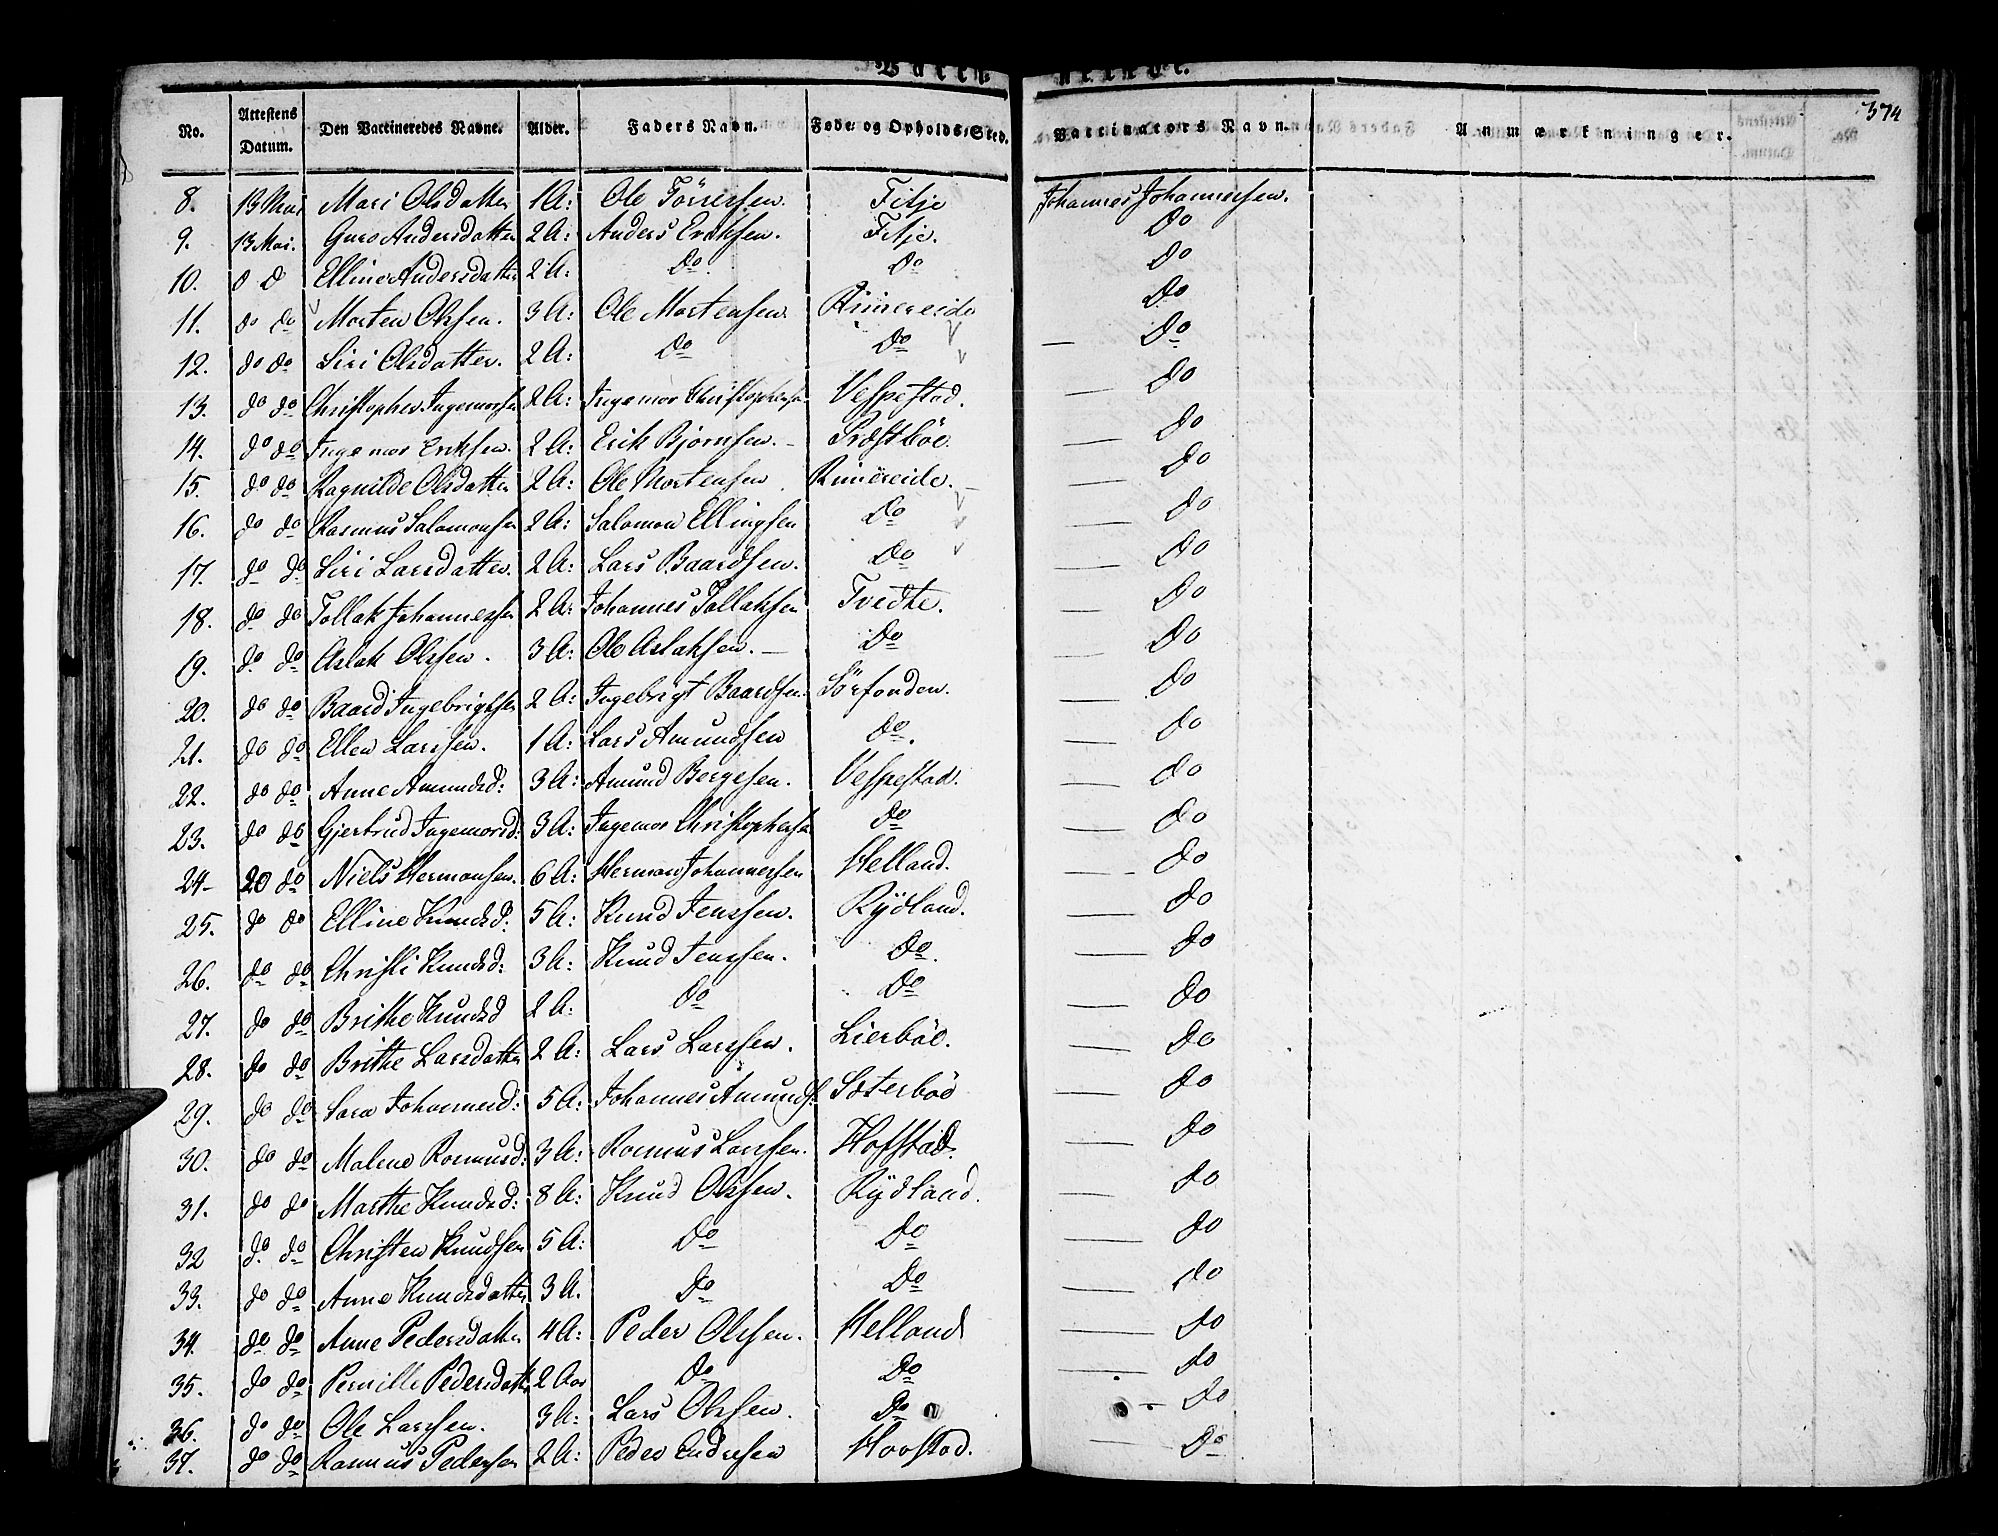 374
No. Attestens Datum. Den Vaccineredes Navne. Alder. Faders Navn. Føde- og Opholds-Sted. Vaccinators Navn. Anmærkninger.
8. 13 Mai Mari Olsdatter 1 A: Ole Tørressen. Fitje Johannes Johannessen.
9. 13 Mai. Guro Andersdatter 2 A: Anders Eriksen. Fitje. Do
10. d d Elline Andersdatter 2 A: Do. Do Do
11. do do Morten Olsen. 3 A: Ole Mortensen. Rimereide Do
12. do do Siri Olsdatter. 2 A: Do Do — Do
13. do do Christopher Ingemorsen 2 A: Ingemor Christophersen Vespestad. — Do
14. do do Ingemor Eriksen. 2 A: Erik Bjørnsen. – Præstbøe. — Do
15. do do Ragnilde Olsdatter 2 A: Ole Mortensen. Rimereide. — Do
16. do do Rasmus Salomonsen 2 A: Salomon Ellingsen Do — Do
17. do do Siri Larsdatter. 2 A: Lars Baardsen. Do — Do
18. do do Tollak Johannessen 2 A: Johannes Tollaksen Tvedte. — Do
19. do do Aslak Olsen. 3 A: Ole Aslaksen. – Do — Do
20. do do Baard Ingebrigtsen 2 A: Ingebrigt Baardsen. Sørfonden. — Do
21. do do Ellen Larssen. 1 A: Lars Amundsen Do. — Do
22. do do Anne Amundsd: 3 A: Amund Børgesen. Vespestad. — Do
23. do do Gjertrud Ingemorsd: 3 A: Ingemor Christophersen Do — Do
24– 20 do Niels Hermansen. 6 A: Herman Johannessen Helland. — Do
25. do do Elline Knudsd: 5 A: Knud Jenssen. Rydland. — Do
26. do do Christi Knudsd: 3 A: Knud Jenssen. Do. — Do
27. do do Brithe Knudsd 2 A: Do Do — Do
28. do do Brithe Larsdatter 2 A: Lars Larssen. Lierbøe. — Do
29. do do Sara Johannesd: 5 A: Johannes Amunds: Sæterbøe — Do
30. do do Malene Rasmusd: 3 A: Rasmus Larssen. Hofstad. — Do
31. do do Marthe Knudsd: 8 A: Knud Olssen. Rydland. — Do
32 do. do Christen Knudsen 5 A: Do Do — Do
33. do do Anne Knudsdatter 3 A. Do Do — Do
34. do do Anne Pedersdatter 4 A: Peder Olssen. Helland — Do
35. do do Pernille Pedersdatter 2 Aar Do Do — Do
36. do do Ole Larssen. 3 A: Lars Olssen. Do – Do
37. do do Rasmus Pedersen 2 A: Peder Endresen Hovstad. — Do